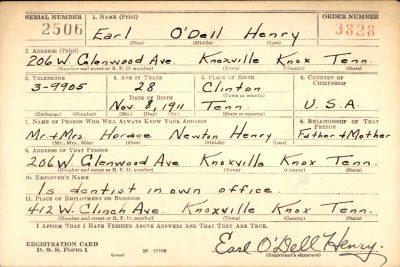 SERIAL NUMBER 1. NAME (Print) ORDER NUMBER
2506 Earl O'Dell Henry 3828
(First) (Middle) (Last)
2. ADDRESS (Print)
206 W. Glenwood Ave Knoxville Knox Tenn.
(Number and street or R. F. D. number) (Town) (County) (State)
3. TELEPHONE 4. AGE IN YEARS 5. PLACE OF BIRTH 6. COUNTRY OF CITIZENSHIP
3-9905 28 Clinton
DATE OF BIRTH (Town or county)
Nov. 8, 1911 Tenn U.S.A.
(Exchange) (Number) (Mo.) (Day) (Yr.) (State or country)
7. NAME OF PERSON WHO WILL ALWAYS KNOW YOUR ADDRESS 8. RELATIONSHIP OF THAT PERSON
Mr + Mrs. Horace Newton Henry Father + Mother
(Mr., Mrs., Miss) (First) (Middle) (Last)
9. ADDRESS OF THAT PERSON
206 W. Glenwood Ave. Knoxville Knox Tenn.
(Number and street or R. F. D. number) (Town) (County) (State)
10. EMPLOYER'S NAME
Is dentist in own office
11. PLACE OF EMPLOYMENT OR BUSINESS
412 W. Clinch Ave. Knoxville Knox Tenn
(Number and street or R. F. D. number) (Town) (County) (State)
I AFFIRM THAT I HAVE VERIFIED ABOVE ANSWERS AND THAT THEY ARE TRUE.
REGISTRATION CARD
D. S. S. Form 1 (over) Earl O'Dell Henry.
(Registrant's signature)